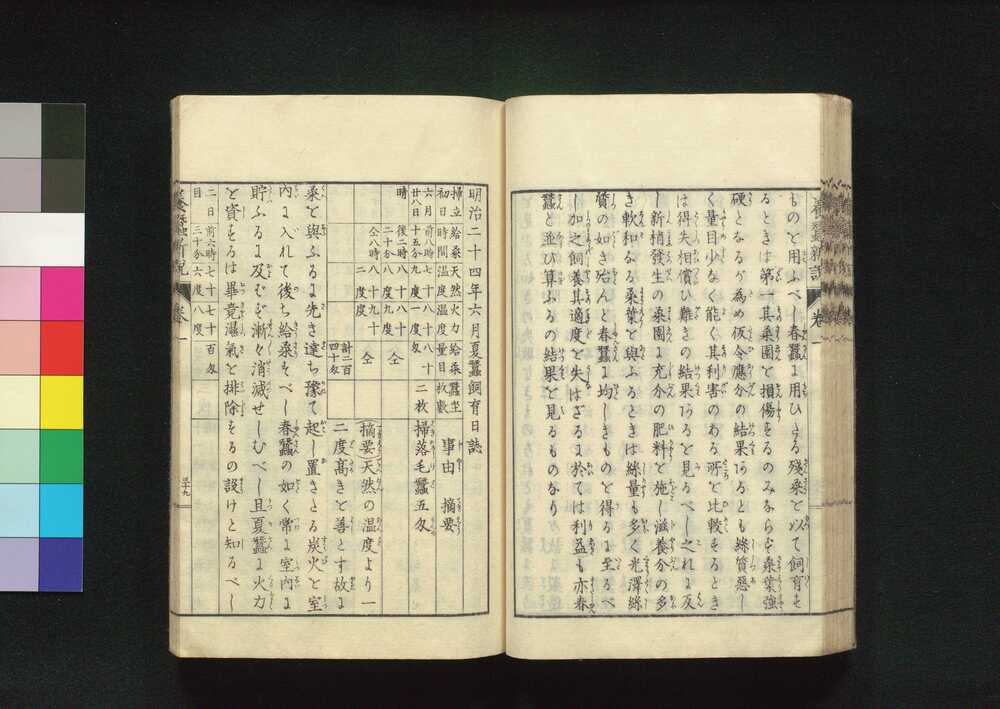 養蚕新説 卷一
ものを用ふべし春蠶に用ひたる殘桑を以て飼育せ
るときは第一其桑園を損傷をるのみならも桑葉強
硬となるが為め仮令應分の結果あるとも絲質惡し
く量目少なく能く其利害のある所を比較もるとき
は得失相償ひ難きの結果あるを見るべし之れに反
し新梢發生の桑園に充分の肥料を施し滋養分の多
き軟和なる桑葉を與ふるときは絲量も多く光澤絲
質の如き殆んど春蠶に均しきものを得るに至るべ
し加之飼養其適度を失はざるに於ては利益も亦春
蠶と並び算ふるの結果を見るものなり
明治二十四年六月夏蠶飼育日誌
掃立初日 給桑時間 天然温度 火力温度 給桑量目 蠶坐枚數 事由 摘要
六月廿八日 前八時十五分 七十九度 八十一度 八十匁 二枚 掃落毛蠶五匁
時 後二時二十分 八十八度 八十九度 仝
仝八時 八十二度 九十度 仝
計二百四十匁
(摘要)天然の温度より一
二度髙きを善とす故に
桑を與ふるに先き達ち豫て起し置きたる炭火を室
内に入れて後ち給桑そべし春蠶の如く常に室内に
貯ふるに及むぞ漸々消滅せしむべし且夏蠶に火力
を資をるは畢竟濕氣を排除をるの設けと知るべし
二日目 前六時三十分 七十六度 七十八度 百匁
養蚕新説 卷一 三十九